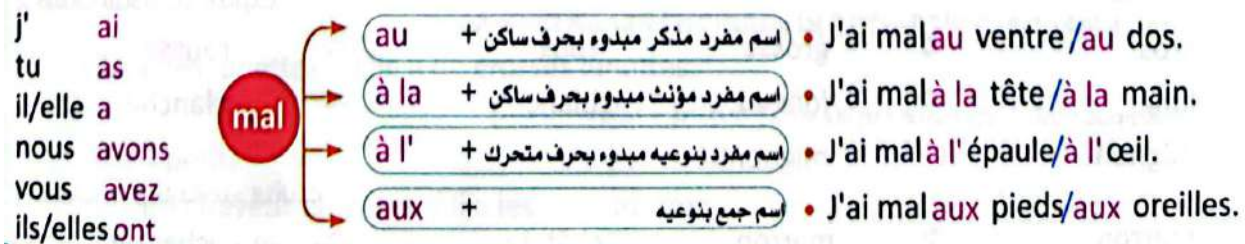 j' ai
tu as
il/elle a
nous avons
vous avez
ils/elles ont
mal
au + اسم مفرد مذكر مبدوء بحرف ساكن • J'ai mal au ventre/au dos.
à la + اسم مفرد مؤنث مبدوء بحرف ساكن • J'ai mal à la tête/à la main.
à l' + اسم مفرد بنوعيه مبدوء بحرف متحرك • J'ai mal à l'épaule/à l'œil.
aux + اسم جمع بنوعيه • J'ai mal aux pieds/aux oreilles.